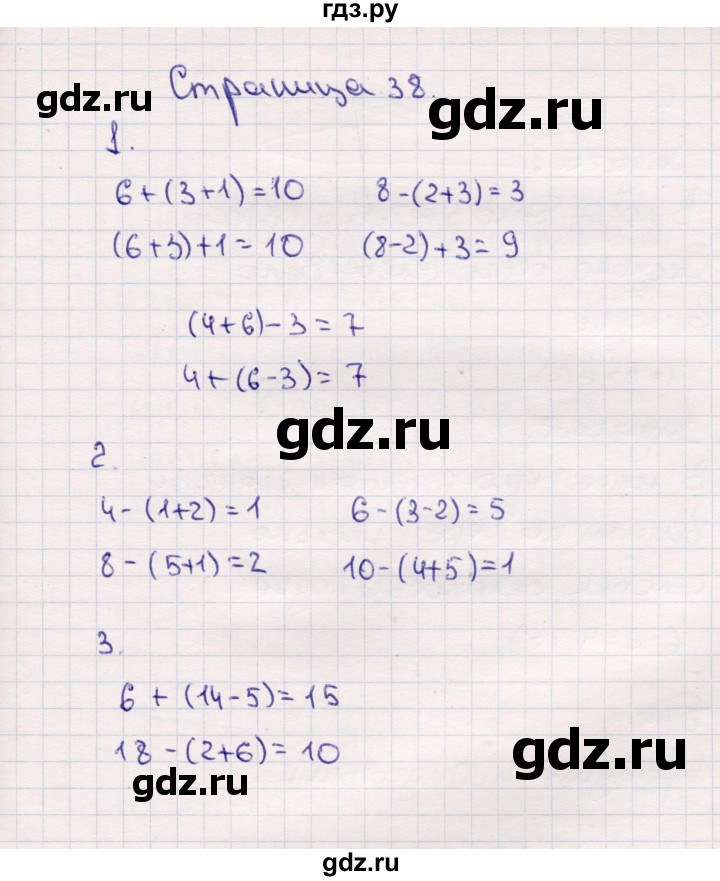 гдз.ру
Страница 38.
gdz.ru
gdz.ru
1.
6+(3+1)=10 8-(2+3)=3
(6+3)+1=10 (8-2)+3=9
(4+6)-3=7
4+(6-3)=7
gdz.ru
2.
4-(1+2)=1 6-(3-2)=5
8-(5+1)=2 10-(4+5)=1
3.
6+(14-5)=15
18-(2+6)=10
gdz.ru
gdz.ru
gdz.ru